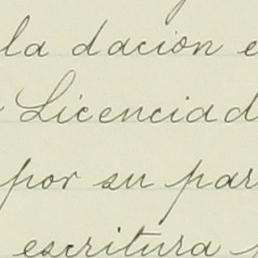 la dacion e
Licenciad
por su par
escritura